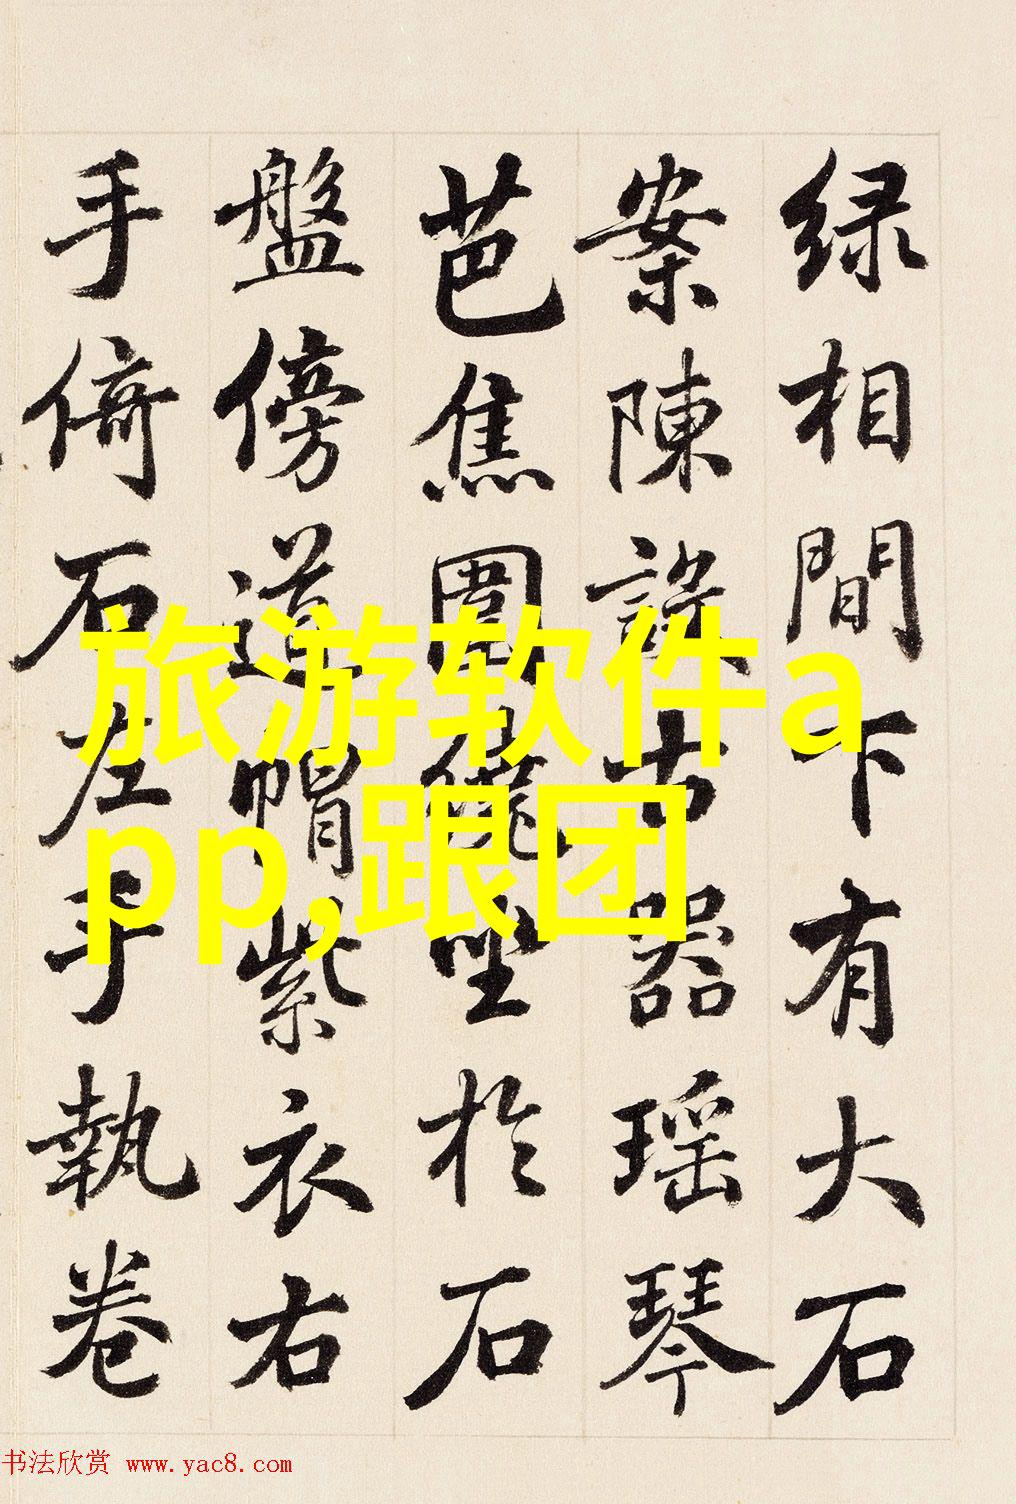 绿相間下有大石
案陳設古器瑶琴
芭焦圍繞坐於石
盤傍道帽紫衣右
手倚石左手執卷
旅游软件a
pp,跟团
书法欣赏 www.yac8.com